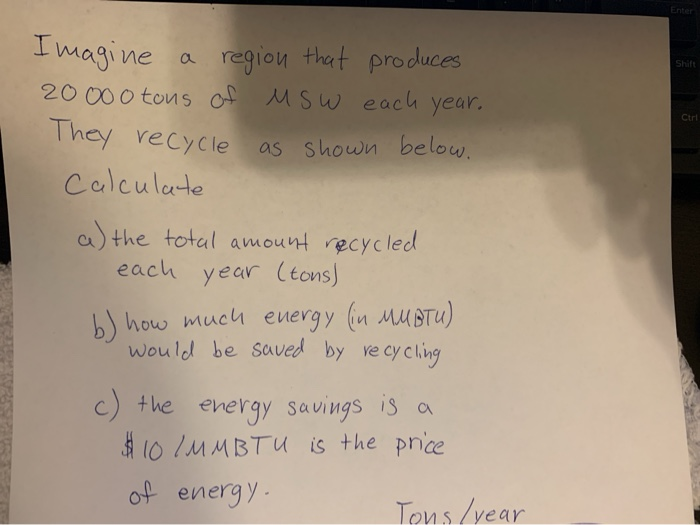 Imagine a region that produces
20 000 tons of MSW each year.
They recycle as shown below.
Calculate
a) the total amount recycled
each year (tons)
b) how much energy (in MMBTU)
would be saved by recycling
c) the energy savings is a
$10 / MMBTU is the price
of energy.
Tons/year
Enter
Shift
Ctrl